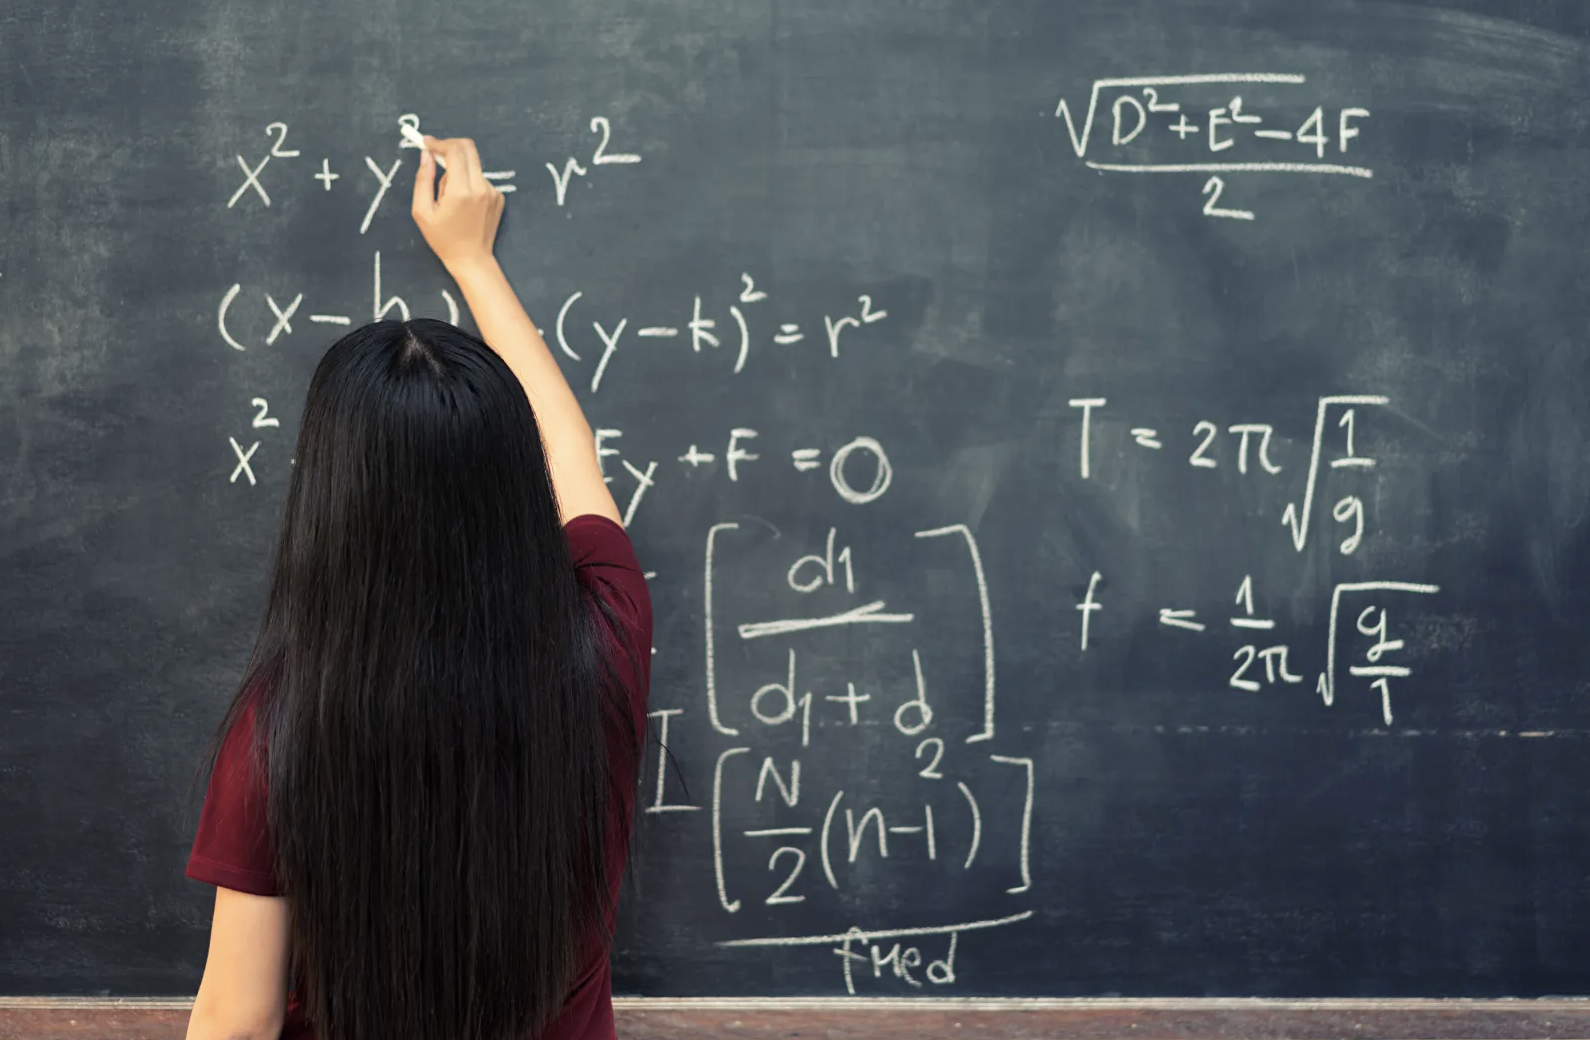 x² + y² = r²
(x – h) (y – k)² = r²
x² Ey + F = 0
[d1 / d1 + d]
I [N/2 (n – 1)²]
fmed
√D² + E² – 4F / 2
T = 2π √1/g
f = 1/2π √g/1